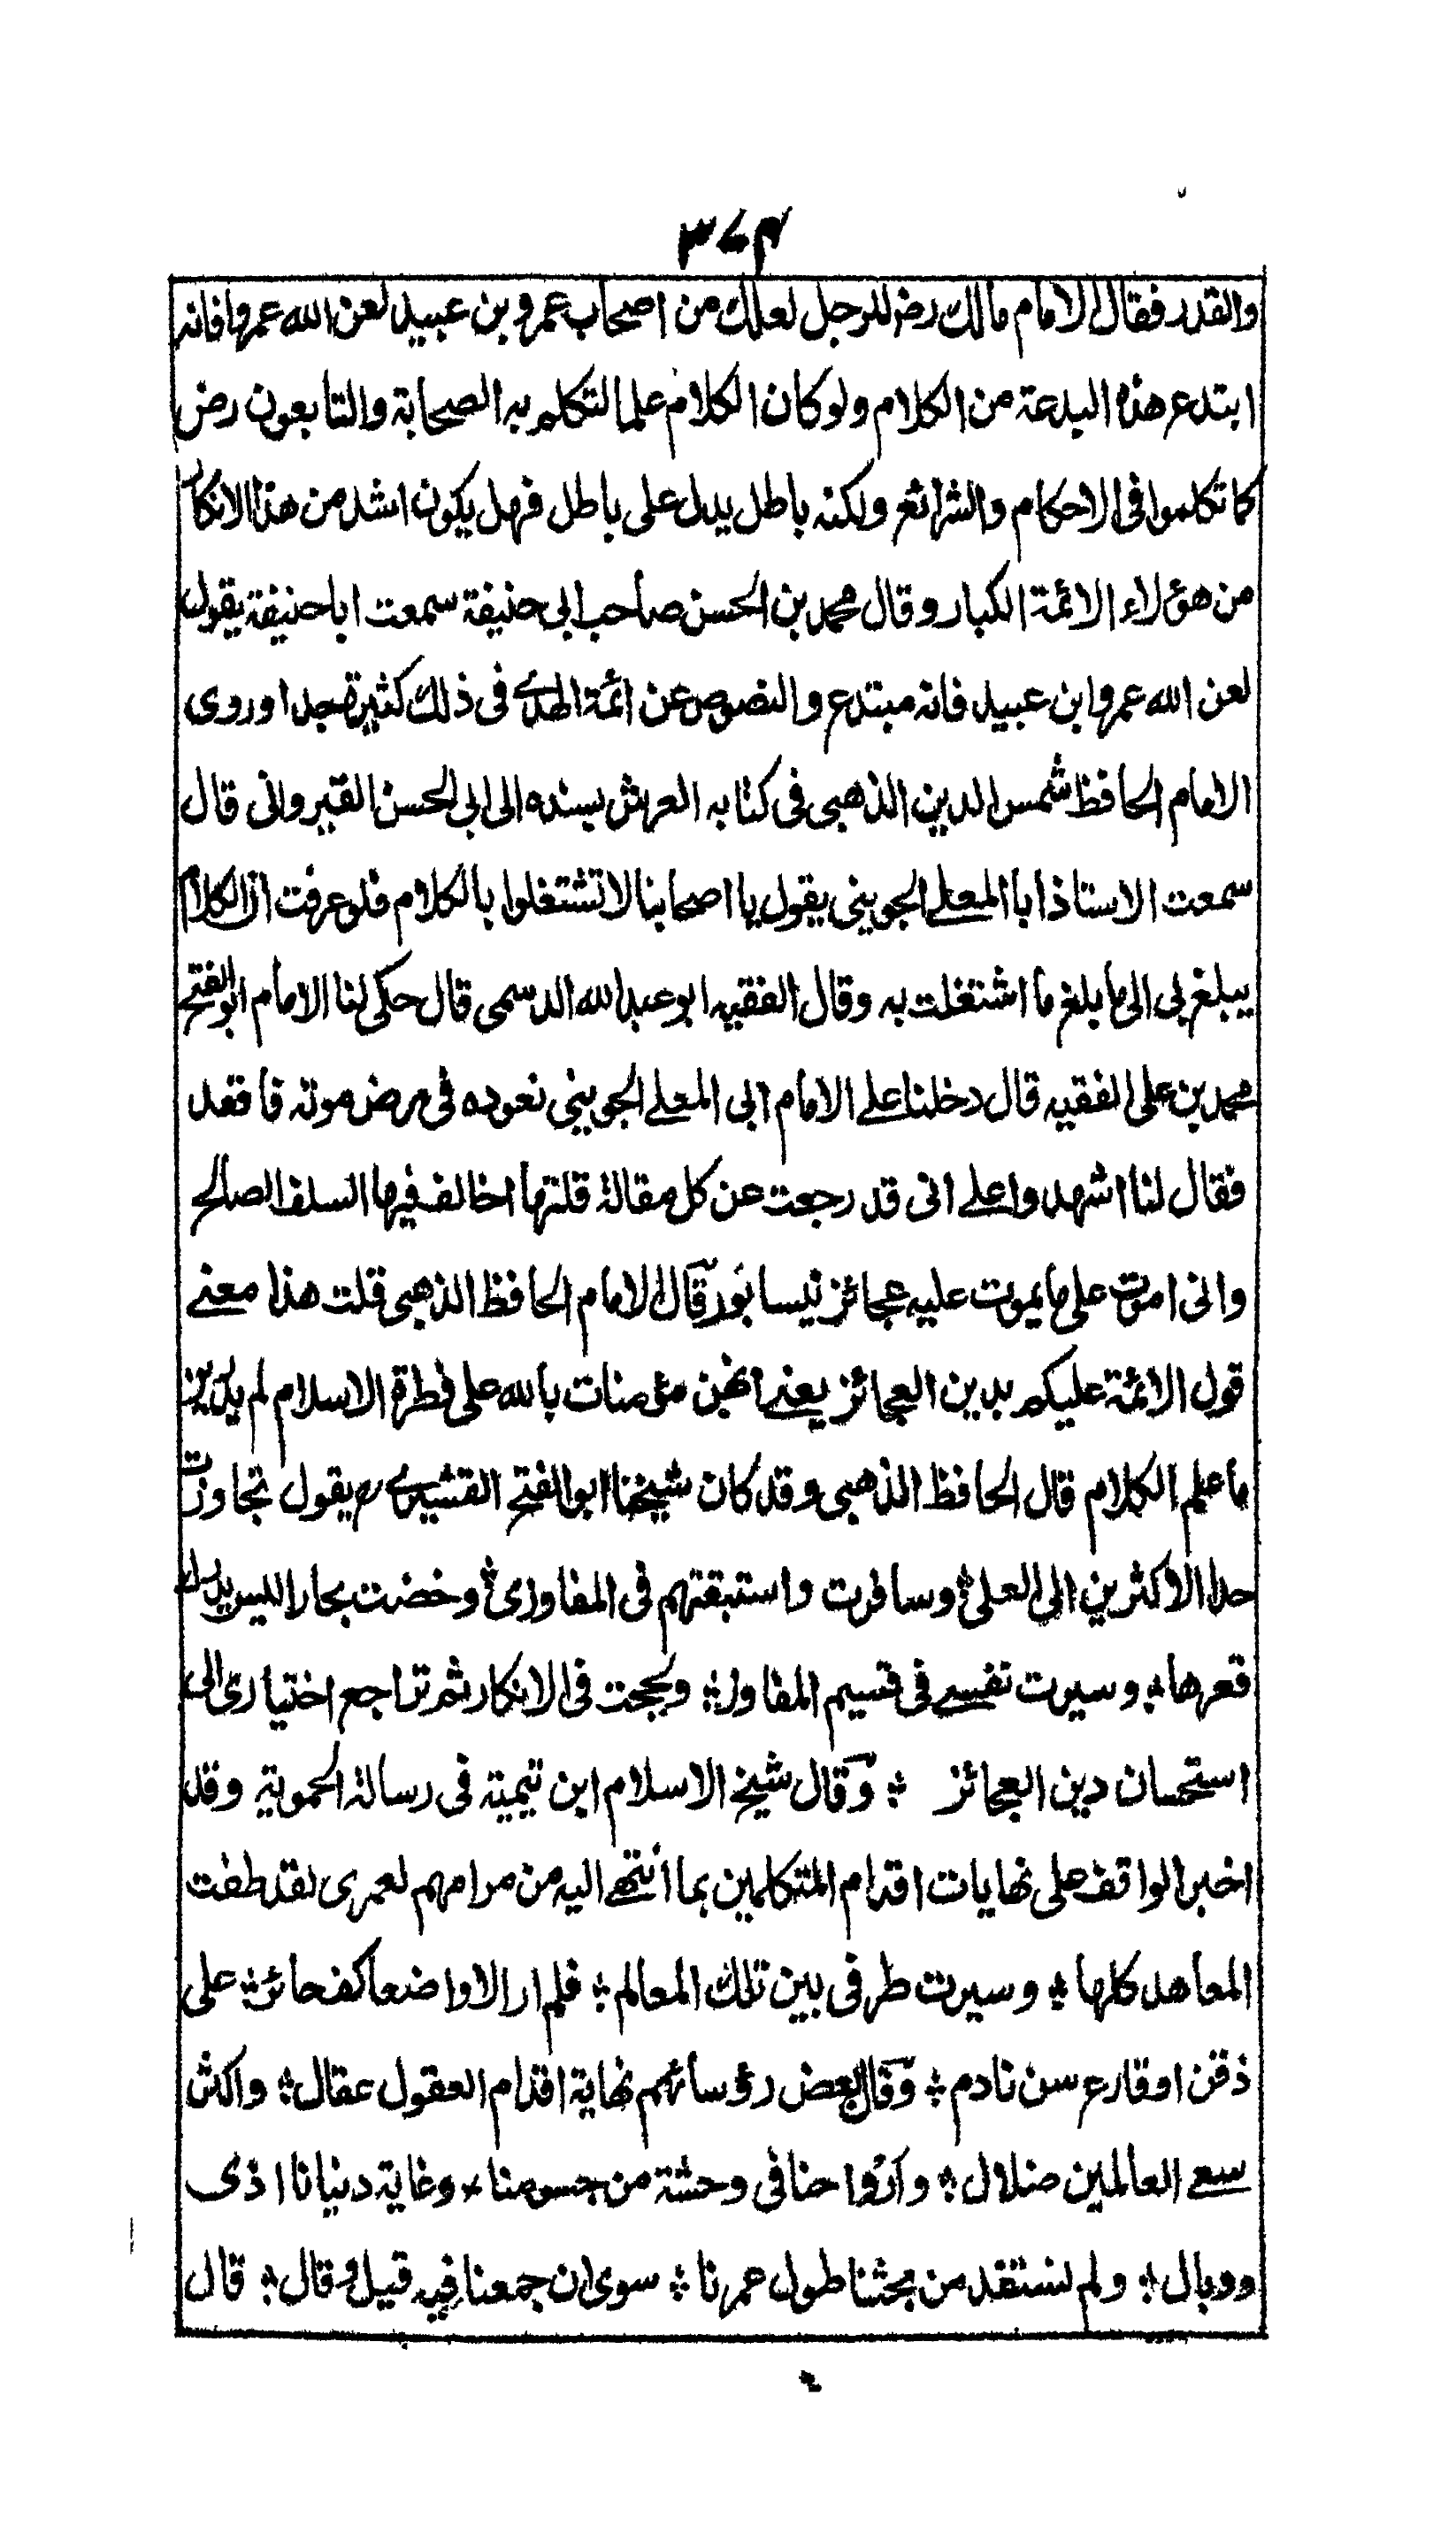 ٣٧٤
والقدر فقال الامام مالك رض للرجل لعلك من اصحاب عمرو بن عبيد لعن الله عمروا فانه
ابتدع هذه البدعة من الكلام ولو كان الكلام علما لتكلم به الصحابة والتابعون رض
كما تكلموا فى الاحكام والشرائع ولكنه باطل يدل على باطل فهل يكون اشد من هذا الانكار
من هؤلاء الائمة الكبار وقال محمد بن الحسن صاحب ابى حنيفة سمعت ابا حنيفة يقول
لعن الله عمروا بن عبيد فانه مبتدع والنصوص عن ائمة الهدى فى ذلك كثيرة جدا وروى
الامام الحافظ شمس الدين الذهبى فى كتابه العرش بسنده الى ابى الحسن القيروانى قال
سمعت الاستاذ ابا المعلے الجوينى يقول يا اصحابنا لا تشتغلوا بالكلام فلو عرفت ان الكلام
يبلغ بى الى ما بلغ ما اشتغلت به وقال الفقيه ابو عبد الله الدسمى قال حكى لنا الامام ابو الفتح
محمد بن على الفقيه قال دخلنا علے الامام ابى المعلے الجوينى نعوده فى مرض موته فاقعد
فقال لنا اشهدوا علے انى قد رجعت عن كل مقالة قلتها اخالف فيها السلف الصالح
وانى اموت على ما يموت عليه عجائز نيسابور قال الامام الحافظ الذهبى قلت هذا معنے
قول الائمة عليكم بدين العجائز يعنے انهن مؤمنات بالله على فطرة الاسلام لم يدرين
ما علم الكلام قال الحافظ الذهبى وقد كان شيخنا ابو الفتح القشيرى رح يقول تجاوزت
حد الاكثرين الى العلى وسافرت واستبقتهم فى المفاوز وخضت بحارا ليس يدرك
قعرها وسيرت نفسے فى قسيم المفاوز ولججت فى الانكار ثم تراجع اختيارى الى
استحسان دين العجائز وقال شيخ الاسلام ابن تيمية فى رسالة الحموية وقد
اخبر الواقف على نهايات اقدام المتكلمين بما انتهے اليه من مرامهم لعمرى لقد طفت
المعاهد كلها وسيرت طرفى بين تلك المعالم فلم ار الا واضعا كف حائر على
ذقن او قارع سن نادم وقال بعض رؤسائهم نهاية اقدام العقول عقال واكثر
سعے العالمين ضلال وارواحنا فى وحشة من جسومنا وغاية دنيانا اذى
ووبال ولم نستفد من بحثنا طول عمرنا سوى ان جمعنا فيه قيل وقال قال